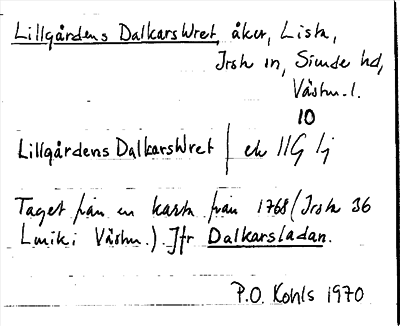 Lillgårdens DalkarsWret, åker, Lista,
Irsta sn, Siende hd,
Västm. l.
10
LillgårdensDalkarsWret | ek IIG lj
Taget från en karta från 1768 (Irsta 36
Lmk i Västm.). Jfr Dalkarsladan.
P.O. Kohls 1970